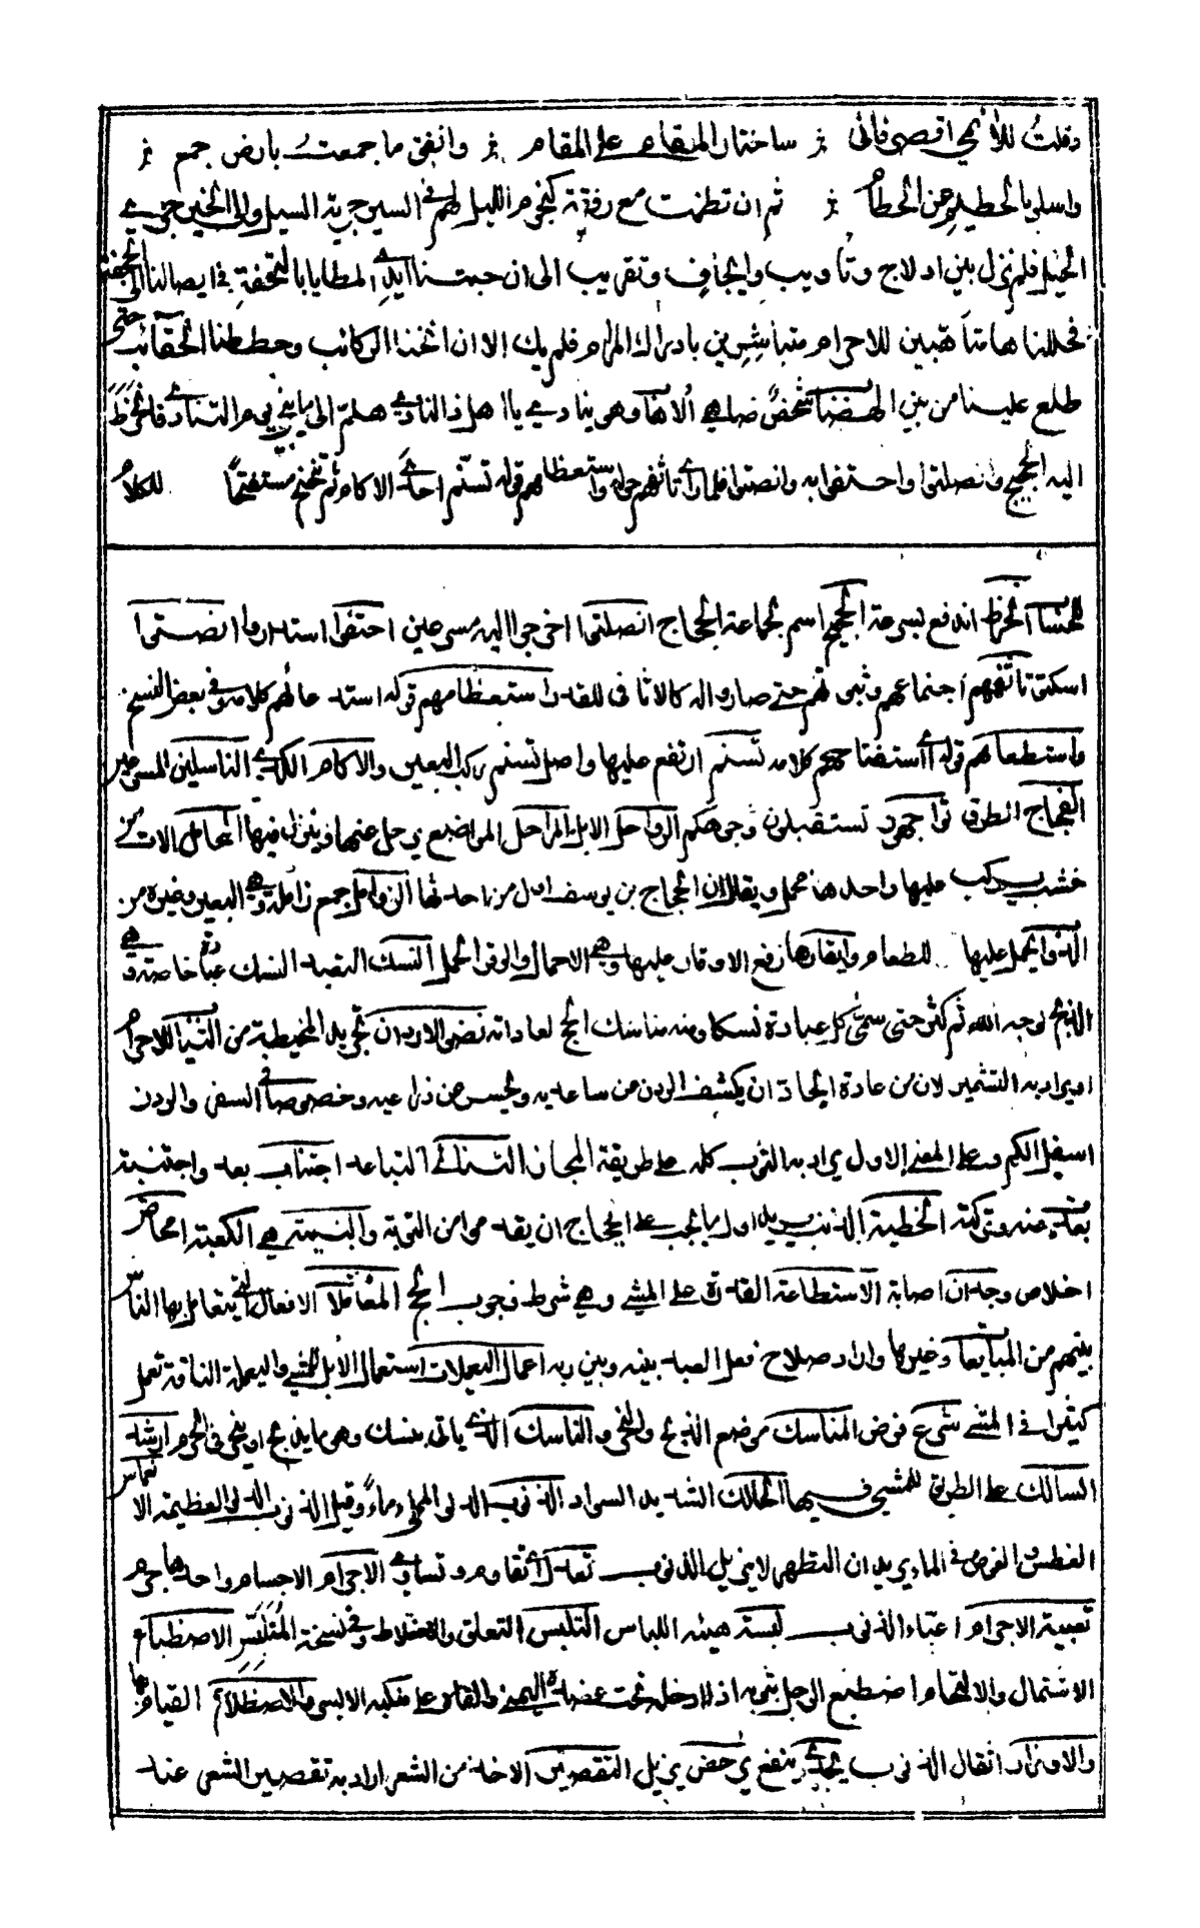 وقلت للائمي اقصر فاني ۞ ساختار المقام على المقام ۞ وانفق ما جمعت بارض جمع ۞
واسلو بالحطيم عن الحطام ۞ ثم انتظمت مع رفقة كنجوم الليل لهم في السير جرية السيل والى الخير جري
الخيل فلم نزل بين ادلاج وتأويب وايجاف وتقريب الى ان حبتنا ايدي المطايا بالتحفة في ايصالنا الى الجحفة
فحللناها متأهبين للاحرام متباشرين بادراك المرام فلم يك الا ان انخنا الركائب وحططنا الحقائب حتى
طلع علينا من بين الهضاب شخص ضاحي الاهاب وهو ينادي يا اهل ذا النادي هلم الى ما ينجي يوم التنادي فانخرط
اليه الحجيج وانصلتوا واحتفوا به وانصتوا فلما رأى تأثفهم حوله واستعظامهم قوله تسنم احدى الاكام ثم تنحنح مستفتحا للكلام
انخرط اندفع بسرعة الحجيج اسم لجماعة الحجاج انصلتوا اخرجوا اليه مسرعين احتفوا استداروا انصتوا
اسكتوا تأثفهم اجتماعهم وثبوتهم حتى صاروا له كالاثافي للقدر واستعظامهم قوله استد حالهم كلامه وفي بعض النسخ
واستطعامهم قوله أي استفتاحهم كلامه تسنم ارتفع عليها واصل تسنم ركب البعير والاكام الكدى الناسلين المسرعين
الفجاج الطرق تواجهون تستقبلون وجوهكم الرواحل الابل المراحل المواضع يرحل عنها وينزل فيها المحامل الات من
خشب يركب عليها واحدها محمل ويقال ان الحجاج بن يوسف اول من احدثها الزوامل جمع زاملة وهي البعير وغيره من
الدواب يحمل عليها للطعام وايقارها رفع الاوقار عليها وهي الاحمال والوقر الحمل النسك التعبد النسك عبادة خاصة وهي
الذبح لوجه الله ثم كثر حتى سمي كل عبادة نسكا ومنه مناسك الحج لعاداته نضو الاردان تجريد المخيطة من الثياب للاحرام
او يراد به التشمير لان من عادة الجاد ان يكشف الردن من ساعديه ويحسر عن ذراعيه وخصوصا في السفر والردن
اسفل الكم وعلى المعنى الاول يراد به الثوب كله على طريقة المجاز التنائي التباعد اجتناب بعد واجتنبته
بعدت عنه وتركته الخطيئة الذنب يريد اول ما يجب على الحجاج ان يقدموا من التوبة والبنية هي الكعبة امحاض
اخلاص وجدان اصابة الاستطاعة القدرة على المشي وهي شرط وجوب الحج المعاملات الافعال التي يتعامل بها الناس
بينهم من المبايعات وغيرها واراد صلاح فعل العبد بينه وبين ربه اعمال اليعملات استعمال الابل للمشي واليعملة الناقة تعمل
كثيرا في المشي شرع فرض المناسك موضع الذبح والنحر والناسك الذي ياتي بنسك وهو ما يذبح او ينحر في الحرم ارشد
السالك على الطريق للمشي فيها الحالك الشديد السواد الذنوب الدلو المملوءة ماء وقيل الذنوب الدلو العظيمة الانغماس
الغطس والغوص في الماء يريد ان التطهر لا يزيل الذنوب تعدل أي تقاوم وتساوي الاجرام الاجسام واحدها جرم
تعبية الاجرام اعباء الذنوب لبسة هيئة اللباس التلبس التعلق والاختلاط وفي نسخة المتلبس الاضطباع
الاشتمال والالتحام اضطبع الرجل بثوبه اذا ادخله تحت عضده اليمنى والقاه على منكبه الايسر والاضطلاع القيام بها
والاوزار اثقال الذنوب يجدي ينفع يرحض يزيل التقصير الاخذ من الشعر اراد به تقصير الشعر عند